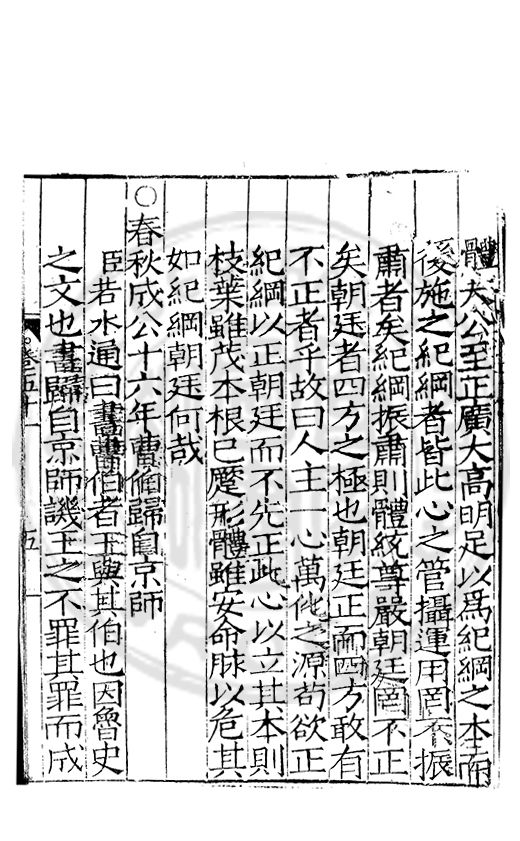 體大公至正廣大高明足以爲紀綱之本而
後施之紀綱者皆此心之管攝運用罔不振
肅者矣紀綱振肅則體統尊嚴朝廷罔不正
矣朝廷者四方之極也朝廷正而四方敢有
不正者乎故曰人主一心萬化之源苟欲正
紀綱以正朝廷而不先正此心以立其本則
枝葉雖茂本根已蹷形體雖安命脉以危其
如紀綱朝廷何哉
○春秋成公十六年曹伯歸自京師
臣若水通曰書曹伯者王與其伯也因魯史
之文也書歸自京師譏王之不罪其罪而成
卷五十一
五